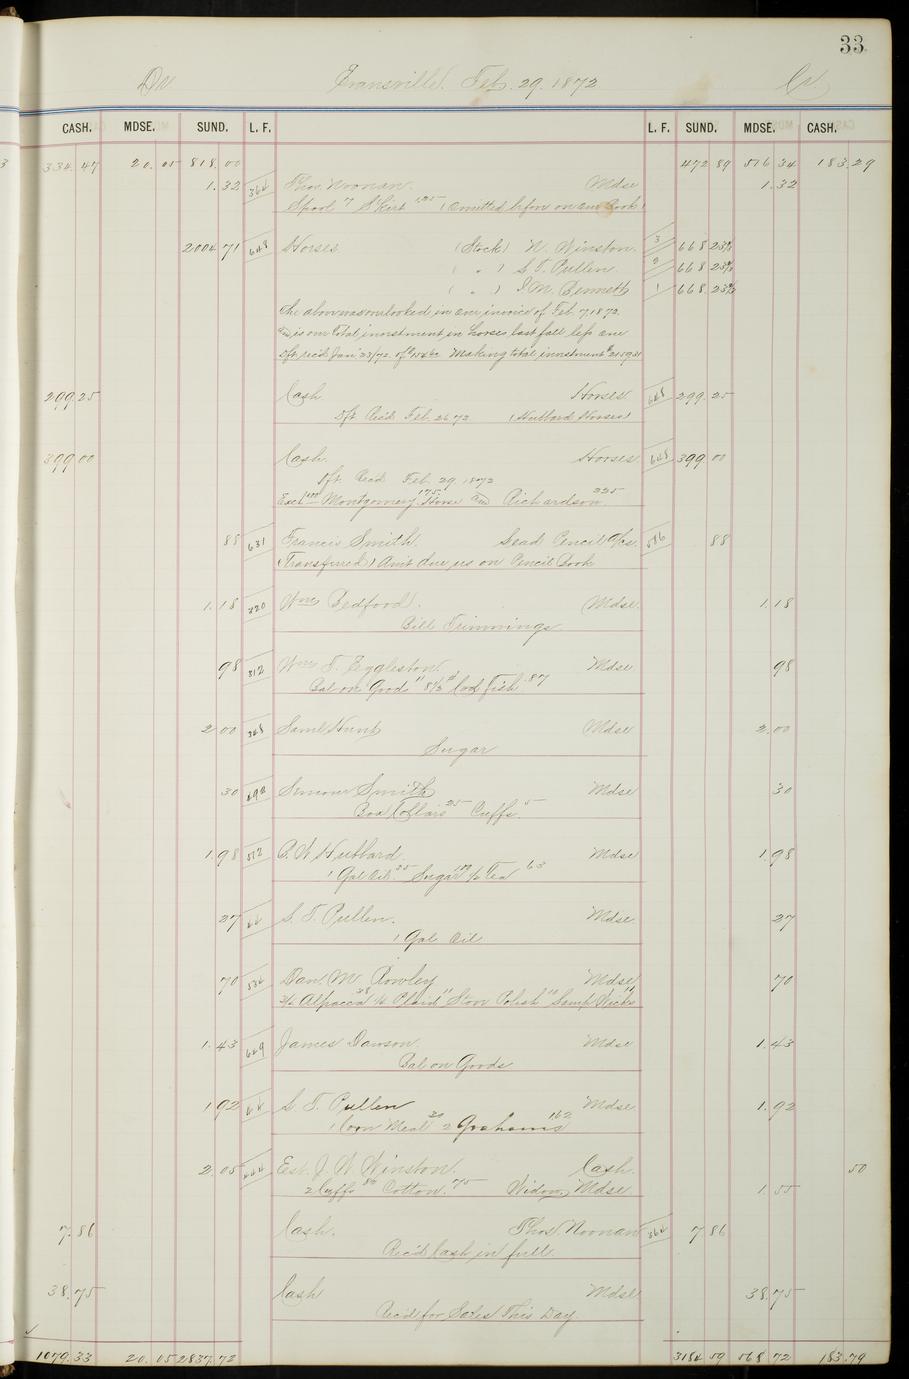 33
Dr Evansville, Feb. 29. 1872 Cr.
CASH. MDSE. SUND. L. F. L. F. SUND. MDSE. CASH.
334.47 20.05 818.00 472 89 516 34 183.29
1.32 364 Thos. Noonan. Mdse 1.32
Spool 7 Skirt 1.25 (omitted before on our Book)
2004 71 648 Horses (Stock) W. Winston. 3 668 23⅔
( " ) S. T. Pullen. 2 668 23⅔
( " ) J. M. Bennett 1 668 23⅔
The above was overlooked in our invoice of Feb. 7, 1872
is our total investment in horses last fall less our
Dft. rec'd Jan'y 23/72. of Making total investment
299.25 Cash Horses 648 299.25
Dft. Rec'd Feb. 26 72 (Hubbard Horses)
399 00 Cash Horses 648 399 00
Dft. Rec'd Feb. 29. 1872
Exch Montgomery 175. Horse and Richardson 225
88 631 Francis Smith. Lead Pencil a/c. 516 88
(Transferred) Am't due us on Pencil Book
1.18 320 Wm Bedford. Mdse. 1.18
Bill Trimmings
98 312 Wm T. Eggleston. Mdse 98
Bal on Goods 11 8½# Cod Fish .87
2 00 348 Saml Hunt Mdse 2.00
Sugar
30 690 Simeon Smith Mdse 30
Box Collars 25 Cuffs. 5
1.98 512 B. W. Hubbard. Mdse 1.98
1 Gal Oil 35 Sugar 100 ½ Tea 63
27 64 S. T. Pullen. Mdse. 27
1 Gal Oil
70 534 Dan. M. Rowley Mdse 70
¾ Alpacca 38 ¼ Plaid 11 Stove Polish 10 Lamp Wicks 11
1.43 649 James Dawson. Mdse 1.43
Bal on Goods
1 92 64 S. T. Pullen Mdse 1.92
1 Corn Meal 30 2 Grahams 162
2.05 444 Est. J. W. Winston. Cash. 50
2 Cuffs 80 Cotton. 75 Widow Mdse 1.55
7.86 Cash. Thos. Noonan 364 7.86
Rec'd Cash in full
38.75 Cash Mdse 38.75
Rec'd for Sales This Day.
1079.33 20.05 2837.72 3184 59 568 72 183.79